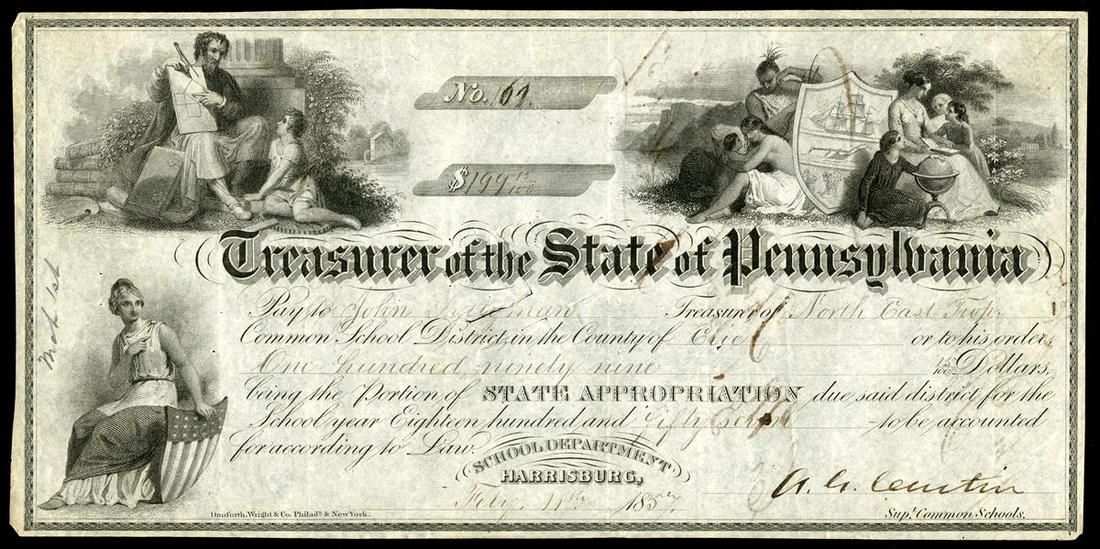 No. 161.
$199 15/100
Treasurer of the State of Pennsylvania
Pay to John Treasurer of North East Twp.
Common School District, in the County of Erie or to his order,
One hundred ninety nine 15/100 Dollars,
being the Portion of STATE APPROPRIATION due said district for the
School year Eighteen hundred and fifty seven to be accounted
for according to Law.
SCHOOL DEPARTMENT
HARRISBURG,
Feby. 11th 1857
A. G. Curtin
Supt. Common Schools.
Danforth, Wright & Co. Philada. & New York.